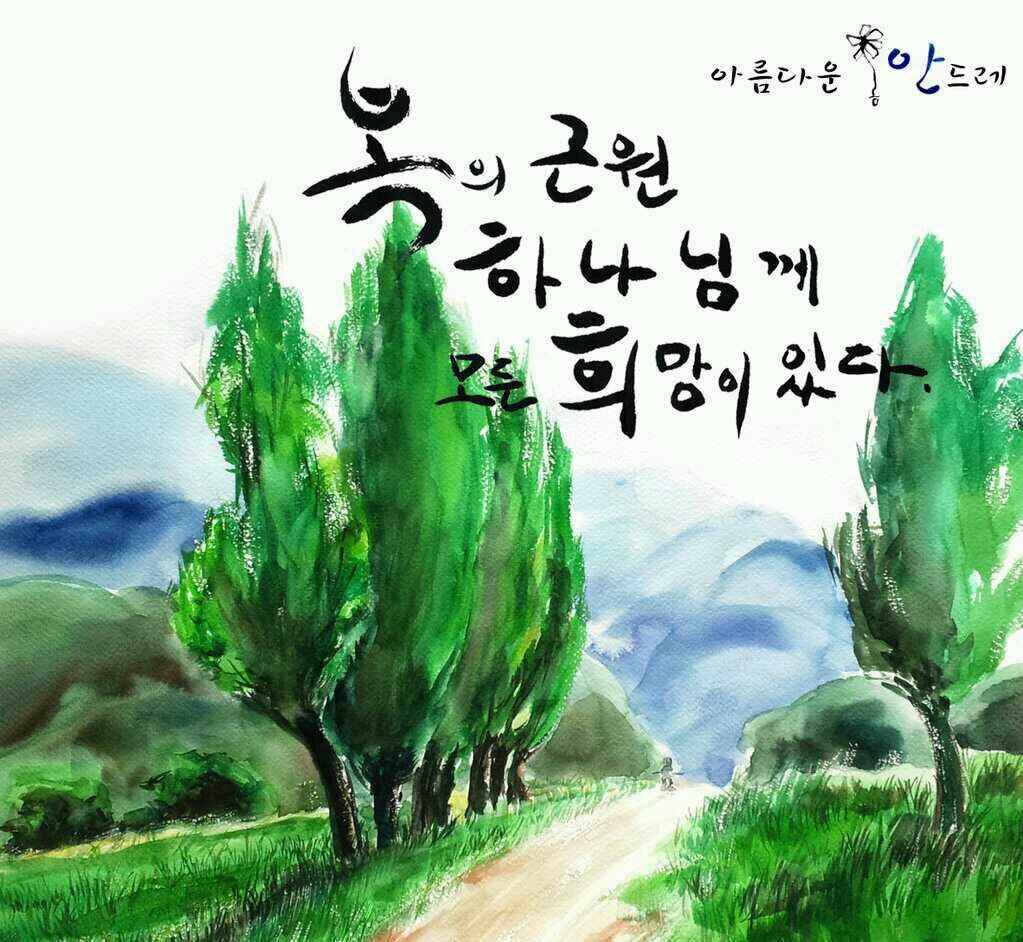 아름다운 안드레
복의 근원
하나님께
모든 희망이 있다.